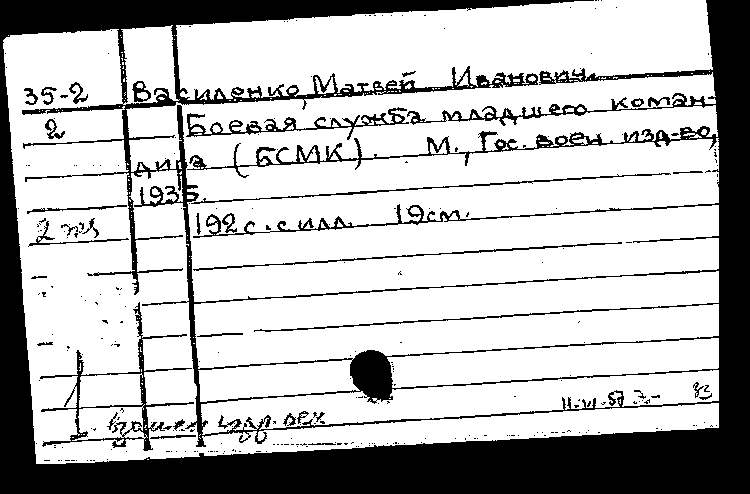 35-2 Василенко, Матвей Иванович.
2 Боевая служба младшего коман-
дира (БСМК). М., Гос. воен. изд-во,
1935.
2 экз 192 с. с илл. 19 см.
1